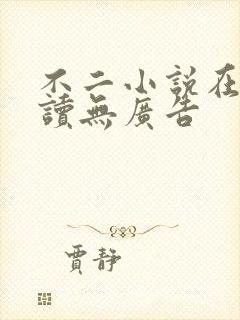 不二小说在
讀無廣告
賈靜